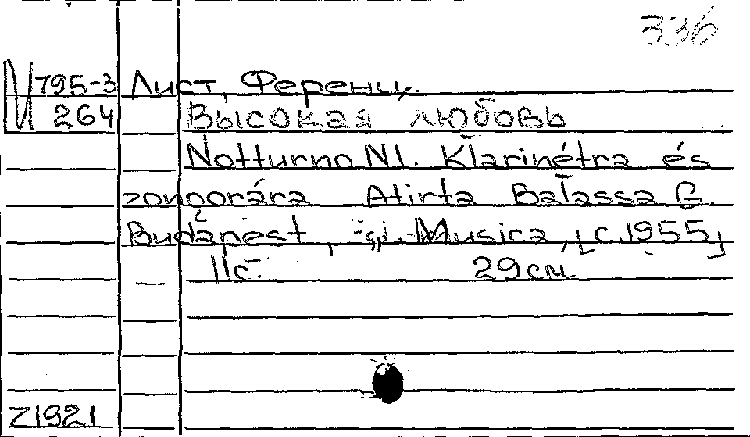 336
М 795-3 Лист, Ференц.
264 Высокая любовь
Notturno N1. Klarinétra és
zongorára Atirta Balassa G.
Budapest, Musica, [c.1955]
11с. 29см.
Z1921